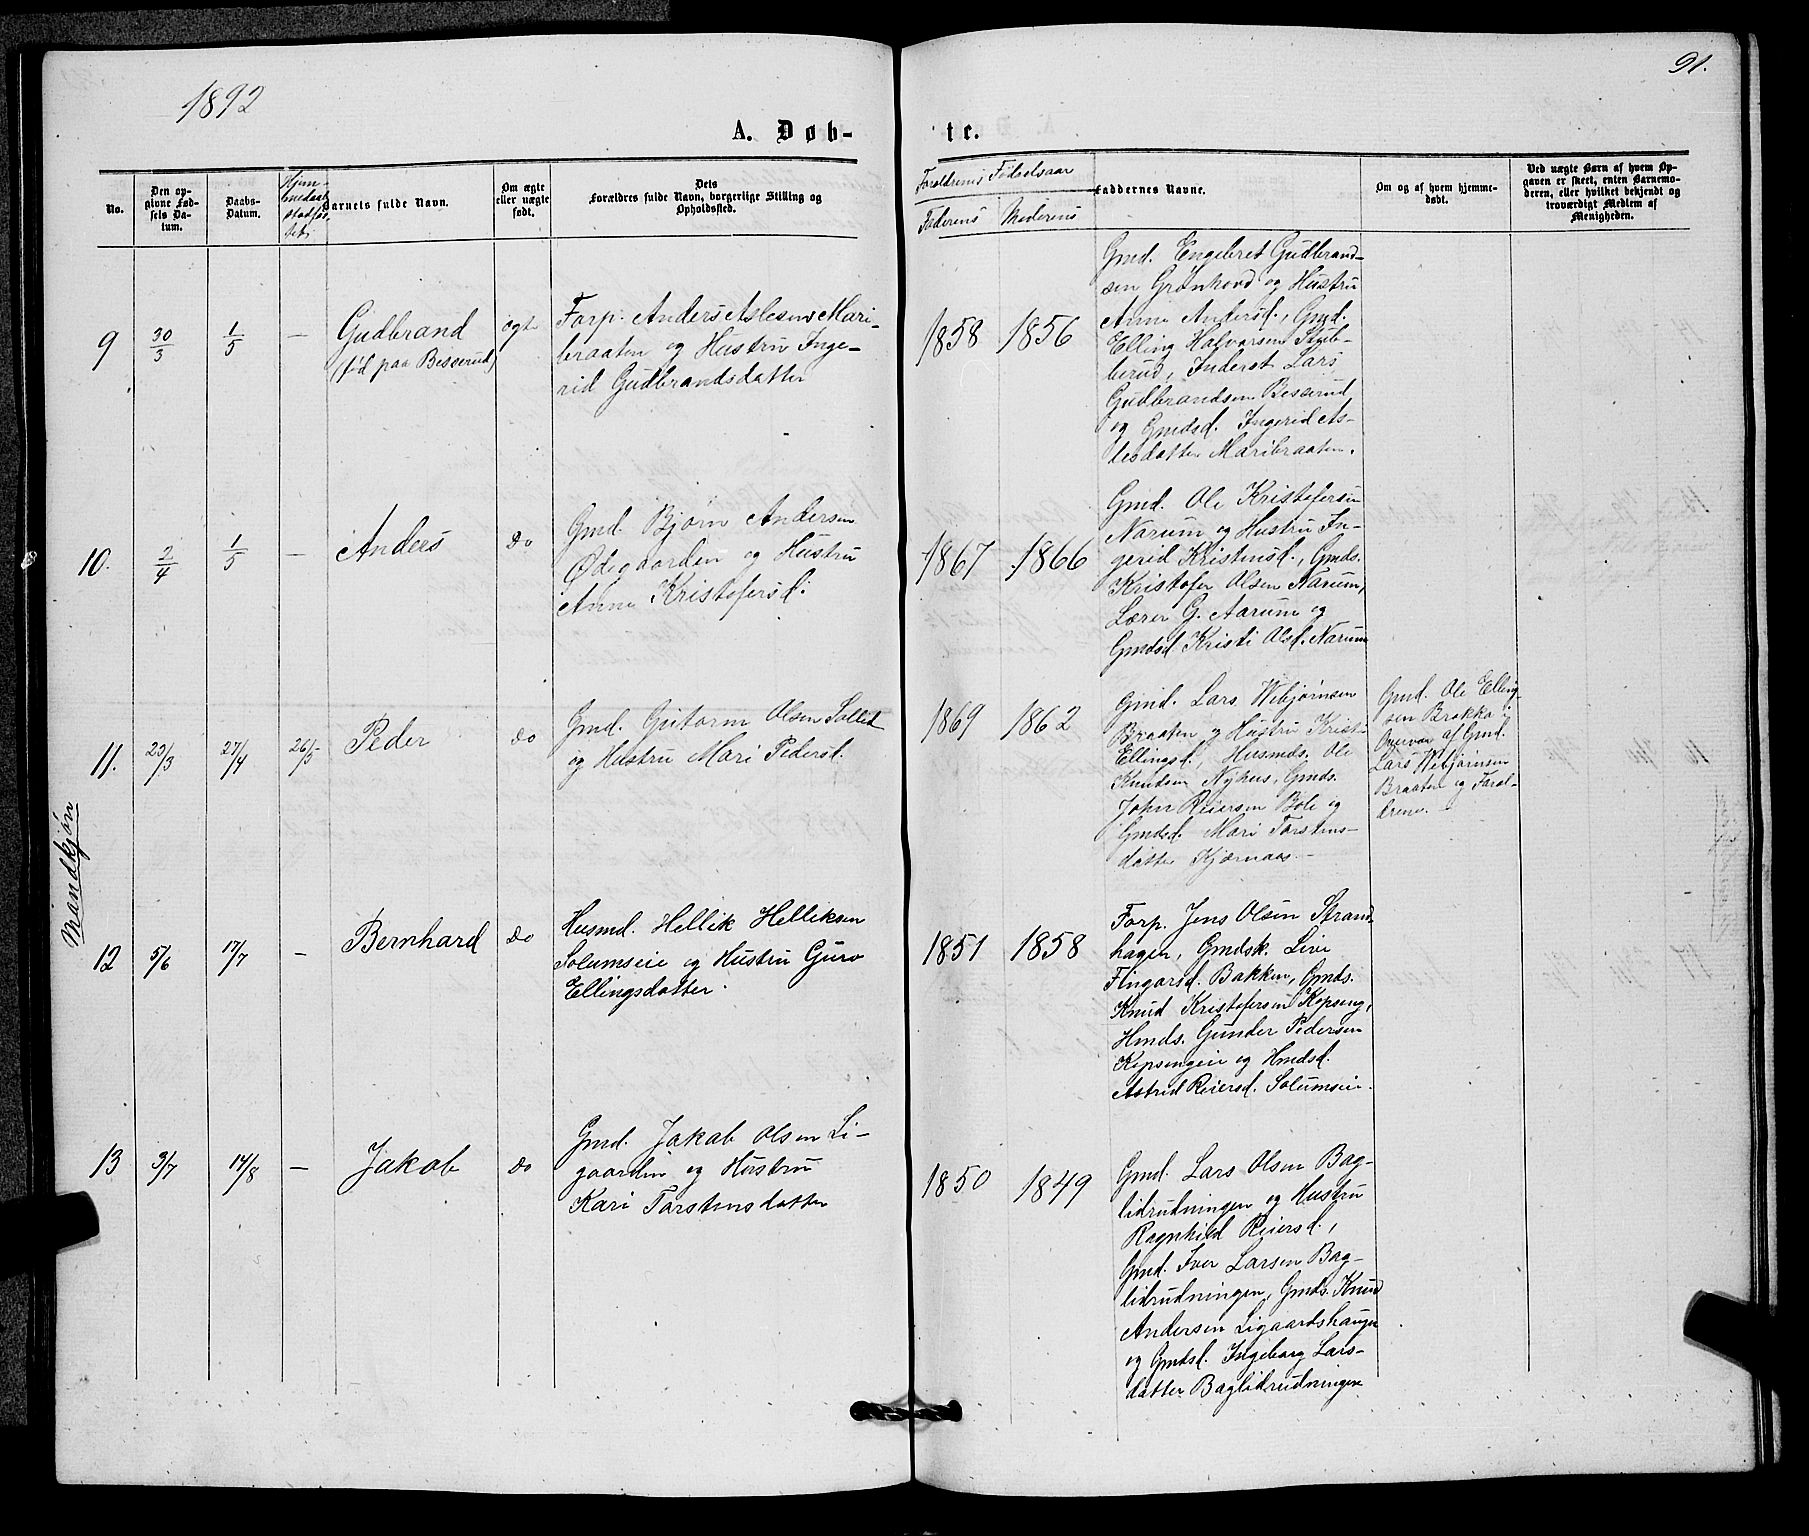 1892
91.
A. Døb-
te.
No.
Den op-
givne Fød-
sels Da-
tum.
Daabs-
Datum.
Hjem-
medaab
Stadfæ-
stet
Barnets fulde Navn.
Om ægte
eller uægte
født.
Dets
Forældres fulde Navn, borgerlige Stilling og
Opholdssted.
Forældrenes Fødselsaar
Faderens
Moderens
Faddernes Navne.
Om og af hvem hjemme-
døbt.
Ved uægte Børn af hvem Op-
gaven er skeet, enten Barnemo-
deren, eller hvilket bekjendt og
troværdigt Medlem af
Menigheden.
Mandkjøn
9
30/3
1/5
—
Gudbrand
(fød paa Besserud)
ægte
Forp. Anders Aslesen Mari-
braaten og Hustru Inge-
rid Gudbrandsdatter
1858
1856
Gmd. Engebret Gudbrand-
sen Grønhovd og Hustru
Anne Andersd., Gmd.
Elling Halvorsen Stub-
berud, Inderst Lars
Gudbrandsen Besserud
og Gmdsd. Ingerid As-
lesdatter Maribraaten.
10.
2/4
1/5
—
Anders
do
Gmd. Bjørn Andersen
Ødegaarden og Hustru
Anne Kristofersd.
1867
1866
Gmd. Ole Kristofersen
Narum og Hustru In-
gerid Kristensd., Gmds.
Kristofer Olsen Narum,
Lærer G. Aarum og
Gmdsd. Kristi Olsd. Narum
11.
23/3
27/4
26/3
Peder
do
Gmd. Gutorm Olsen Sollid
og Hustru Mari Pedersd.
1869
1862
Gmd. Lars Vebjørnsen
Braaten og Hustru Kristi
Ellingsd., Husmds. Ole
Knudsen Nyhus, Gmds.
John Reiersen Bole og
Gmdsd. Mari Torstens-
datter Kjærnaas.—
Gmd. Ole Elling-
sen Brakka i
Overvær af Gmd.
Lars Vebjørnsen
Braaten og Foræl-
drene. —
12
5/6
17/7
—
Bernhard
do
Husmd. Hellik Helliksen
Solumseie og Hustru Guro
Ellingsdatter.
1851
1858
Forp. Jens Olsen Strand-
hagen, Gmdsk. Live
Fingarsd. Bakken, Gmds.
Knud Kristofersen Kopseng,
Hmds. Gunder Pedersen
Kopsengeie og Hmdsd.
Astrid Reiersd. Solumseie.
13
3/7
14/8
—
Jakob
do
Gmd. Jakob Olsen Li-
gaarden og Hustru
Kari Torstensdatter
1850
1849
Gmd. Lars Olsen Bag-
lidrudningen og Hustru
Ragnhild Reiersd.,
Gmd. Iver Larsen Bag-
lidrudningen, Gmds. Knud
Andersen Ligaardshaugen
og Gmdsd. Ingeborg Lars-
datter Baglidrudningen